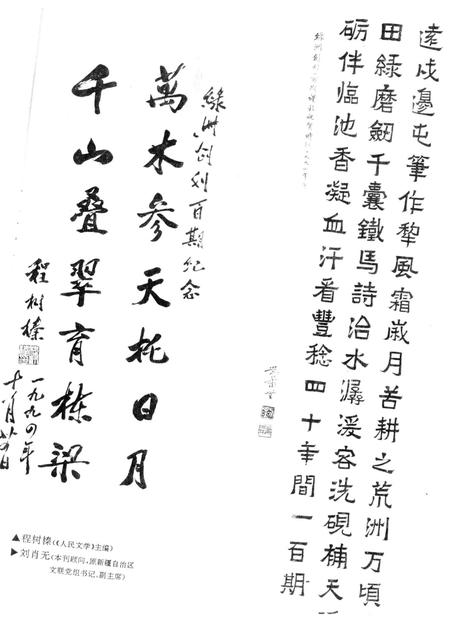 遠戍邊屯筆作犂風霜歲月苦耕之荒洲万頃
田綠磨劒千囊鐵馬詩治水潺湲容洗硯楠天一
砺伴臨池香凝血汗看豐稔四十年間一百期
綠洲创刊百期纪念
萬木參天托日月
千山叠翠育栋梁
程树榛
一九九四年
十月廿四日
▲程树榛(《人民文学》主编)
▶刘肖无(本刊顾问,原新疆自治区
文联党组书记、副主席)